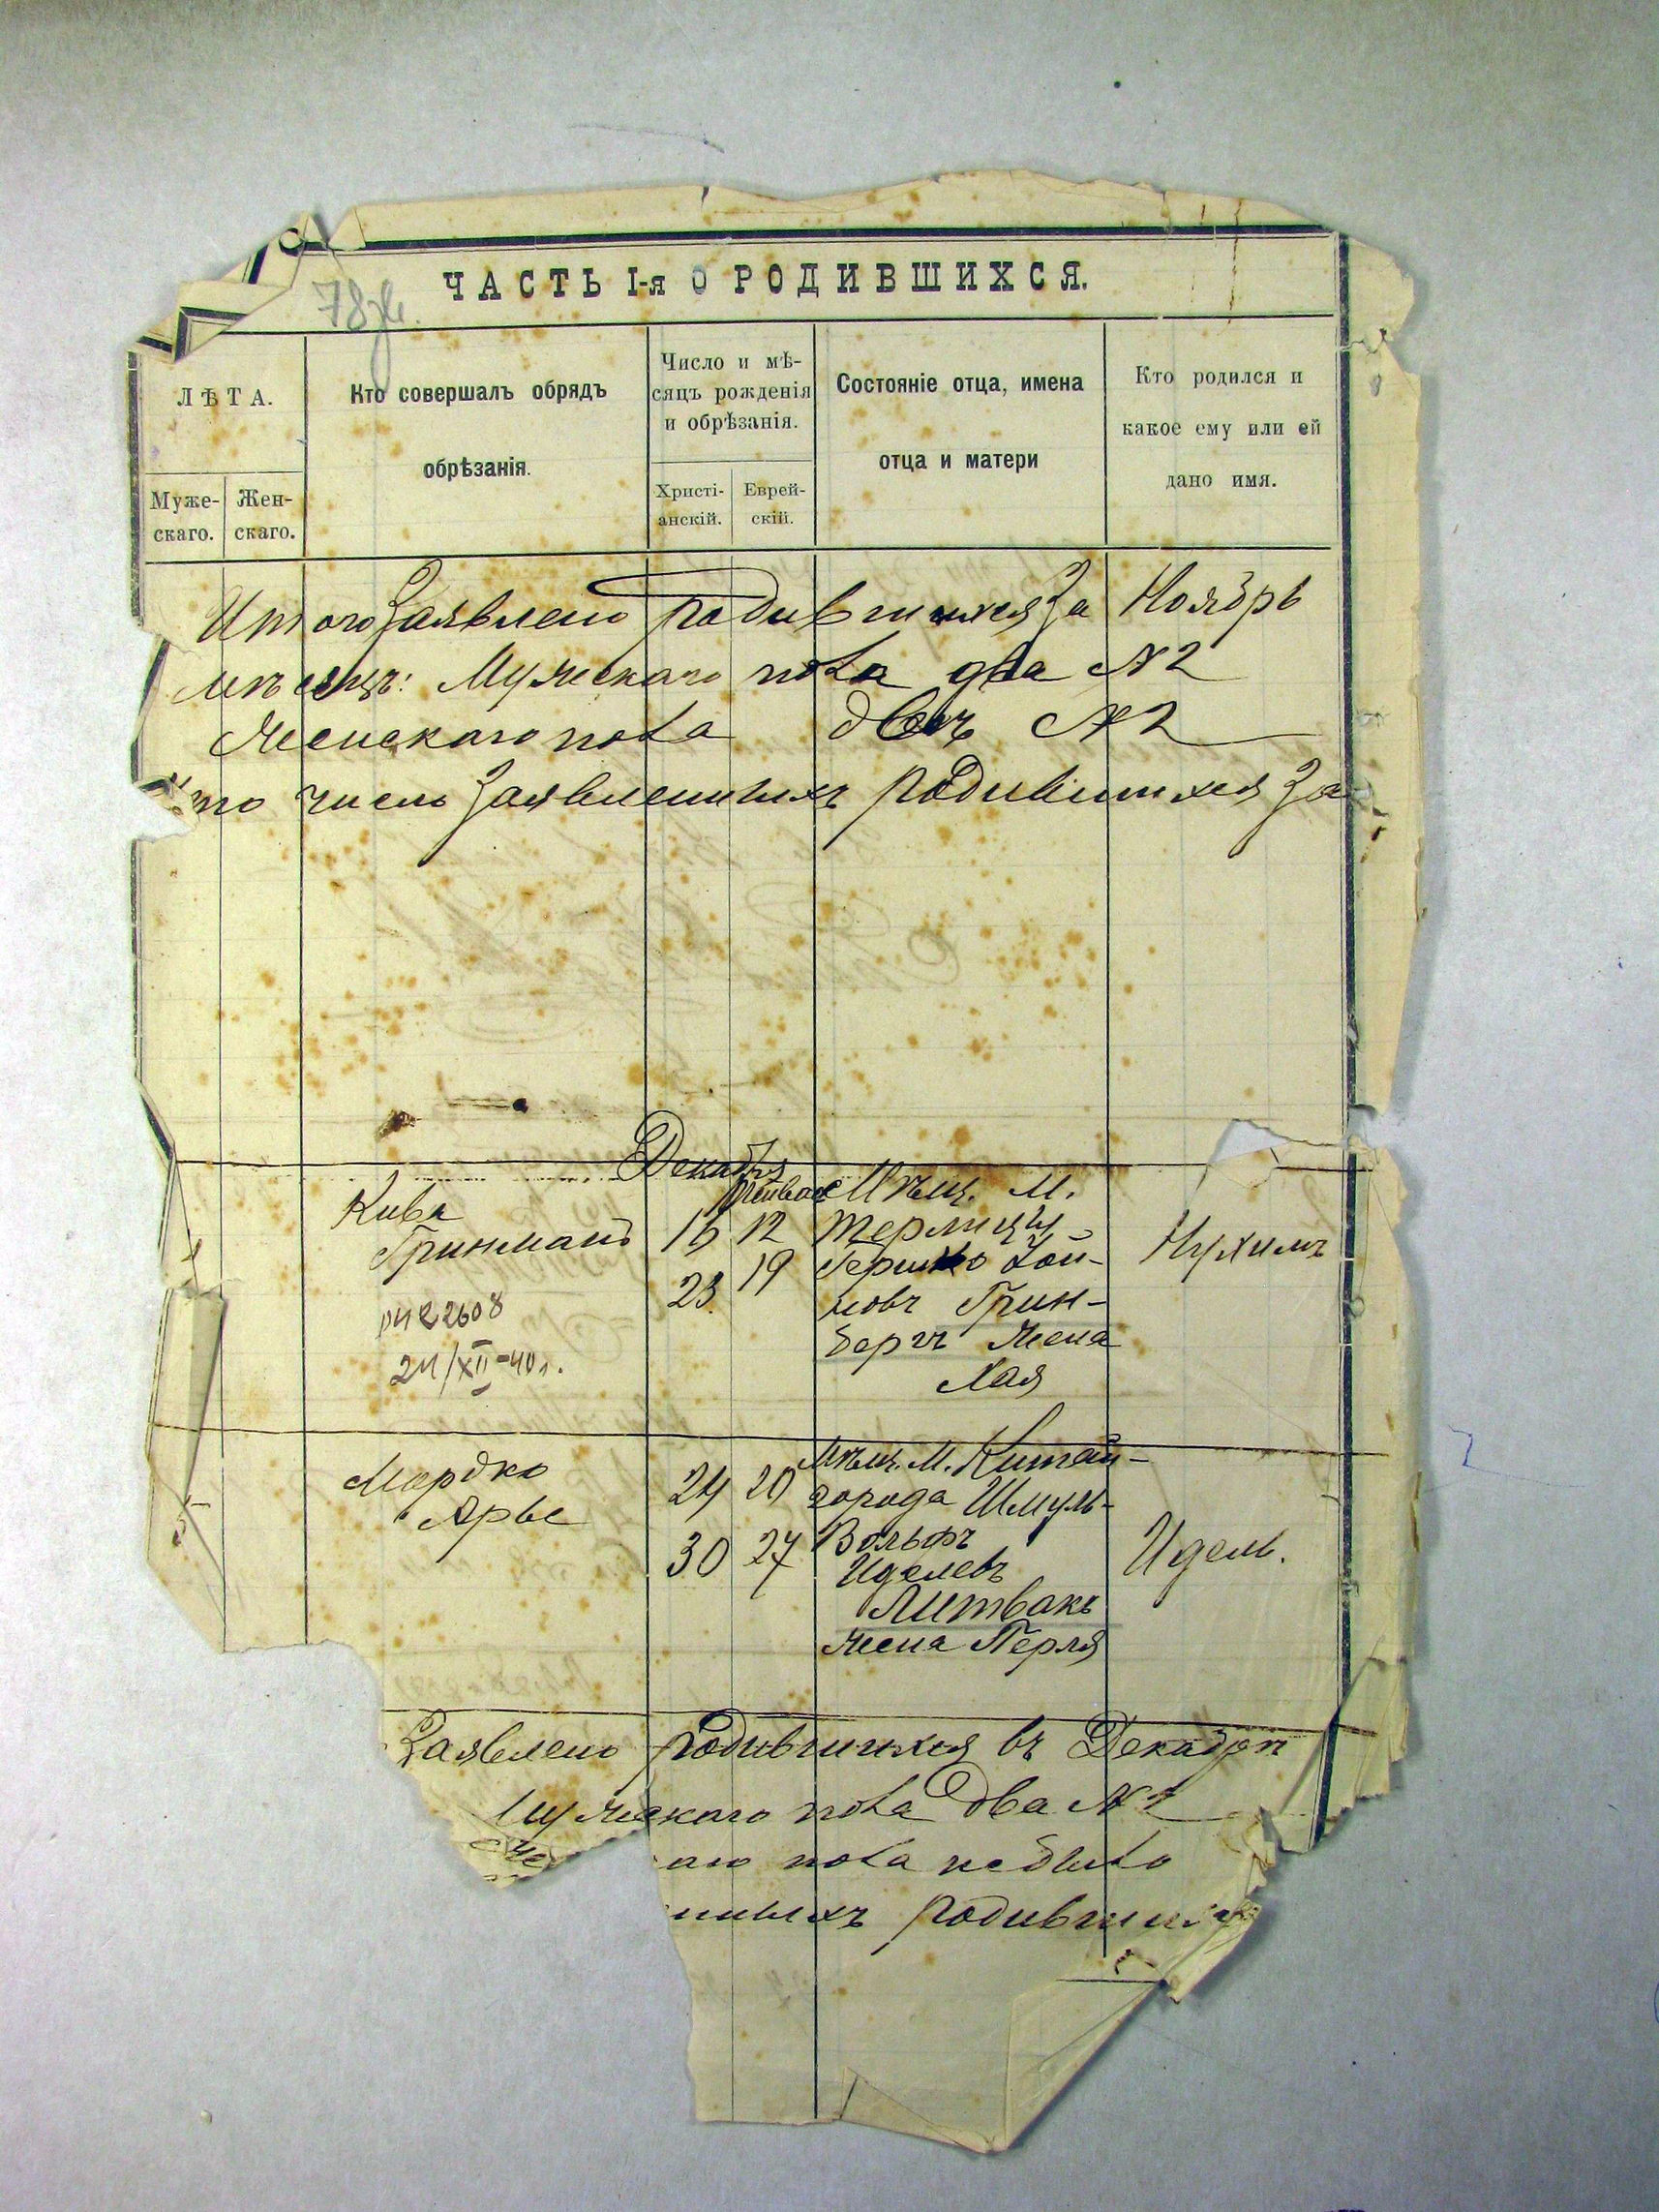 78
ЧАСТЬ I-я О РОДИВШИХСЯ.
ЛѢТА.
Муже-
скаго.
Жен-
скаго.
Кто совершалъ обрядъ
обрѣзанія.
Число и мѣ-
сяцъ рожденія
и обрѣзанія.
Христі-
анскій.
Еврей-
скій.
Состояніе отца, имена
отца и матери
Кто родился и
какое ему или ей
дано имя.
Итого Заявлено родившихся За Ноябрь
мѣсяцъ: Мужескаго пола два №2
Женскаго пола двѣ №2
число Заявленныхъ родившихся За
Декабрь
Кива
Гринманъ
22608
24/XII-40г.
16 12
23. 19
Мѣщ. М.
Терлицы
Гершко Хай-
мовъ Грин-
бергъ Жена
Хая
Нухимъ
1
Мордко
Арье
24 20
30 27
Мѣщ. М. Китай-
города Шмуль-
Вольфъ
Иделевъ
Литвакъ
Жена Перля
Идель.
5
Заявлено родившихся въ Декабрѣ
Мужескаго пола два №2
аго пола небыло
нныхъ родившихся